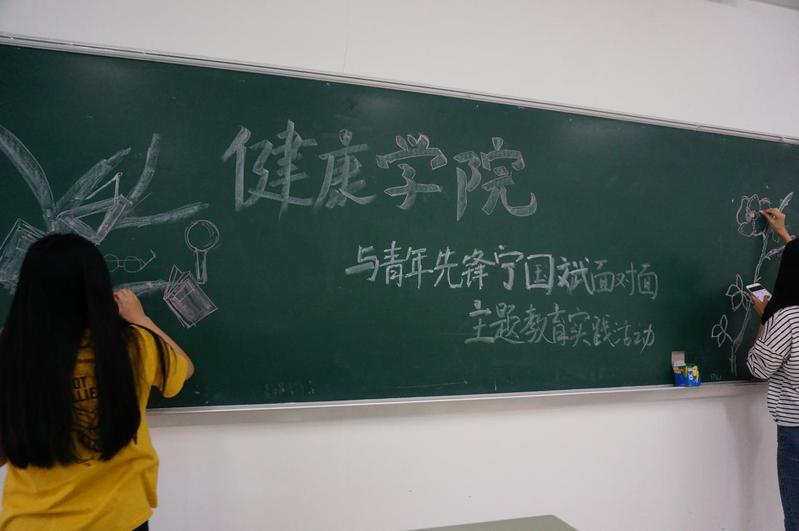 健康学院
与青年先锋宁国斌面对面
主题教育实践活动
OT